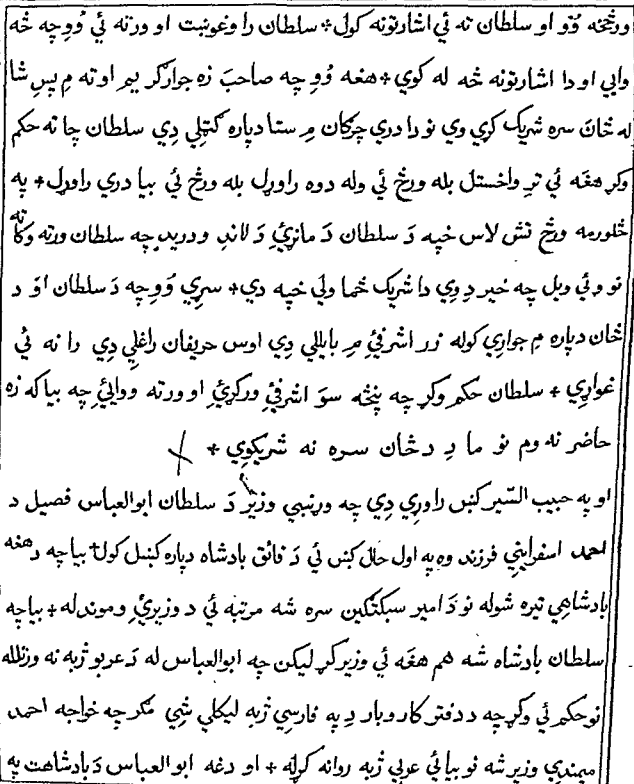 ورڅخه وُو او سلطان ته ئي اشارتونه کول + سلطان را وغوښت او ورته ئي وُوِ چه څه
وايي او دا اشارتونه څه له کوي + هغه وُوِ چه صاحبَ زه جوارګر يم او ته مِ پسِ شا
له ځان سره شريک کړي وي نو دا دري چرګان مِ ستا دپاره ګټلي دِي سلطان چا ته حکم
وکړ هغه ئي ترِ واخستل بله ورځ ئي وله دوه راوړل بله ورځ ئي بيا دري راوړل + په
څلورمه ورځ تش لاس خپه دَ سلطان دَ ماڼۍِ دَ لاندِ ودريدِ چه سلطان ورته وکاته
نو وئي ويل چه خير دِ وِي دا شريک ځما ولي خپه دي + سړِي وَوِ چه دَ سلطان اوَ دَ
ځان دپاره مِ جوارِي کوله زر اشرفۍِ مِ بايللي دِي اوس حريفان راغلِي دِي را نه ئي
غواړِي + سلطان حکم وکړ چه پنځه سوَ اشرفۍِ ورکړئِ او ورته ووايئِ چه بيا که زه
حاضر نه وم نو ما دِ دځان سره نه شريکوِي +
او په حبيب السّير کښ راوړِي دِي چه وړنبي وزير دَ سلطان ابوالعباس فصيل د
احمد اسفراينِي فرزند وه په اول حال کښ ئي دَ فائق بادشاه دپاره کښل کول + بيا چه دَ هغه
بادشاهِي تيره شوله نو دَ امير سبکتګين سره شه مرتبه ئي د وزيرۍِ وموندله + بيا چه
سلطان بادشاه شه هم هغَه ئي وزير کړ ليکن چه ابوالعباس له دَ عربو ژبه نه ورتلله
نو حکم ئي وکړ چه د دفتر کاروبار دِ په فارسِي ژبه ليکلي شِي مګر چه خواجه احمد
ميمندِي وزير شه نو بيا ئي عربِي ژبه روانه کړله + او دغه ابوالعباس دَ بادشاهت په